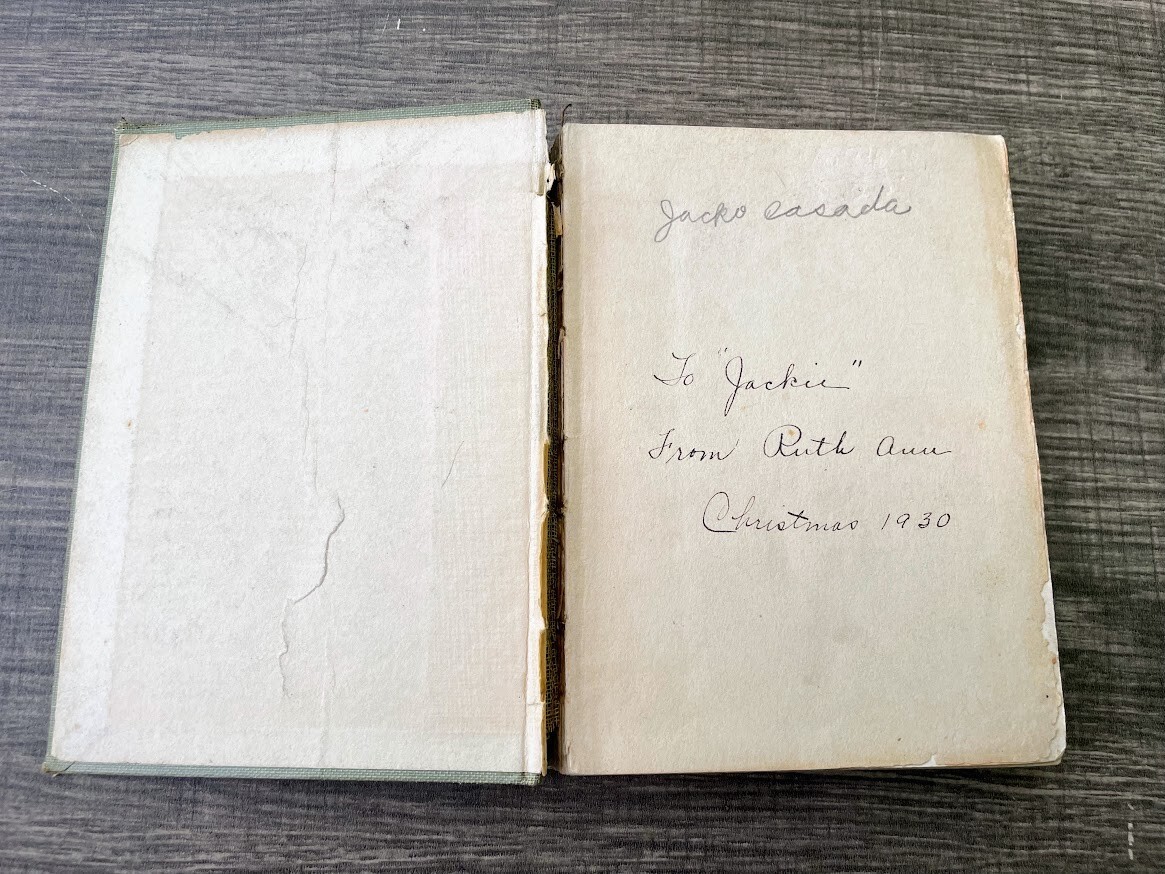 Jacko Casada
To "Jackie"
From Ruth Ann
Christmas 1930